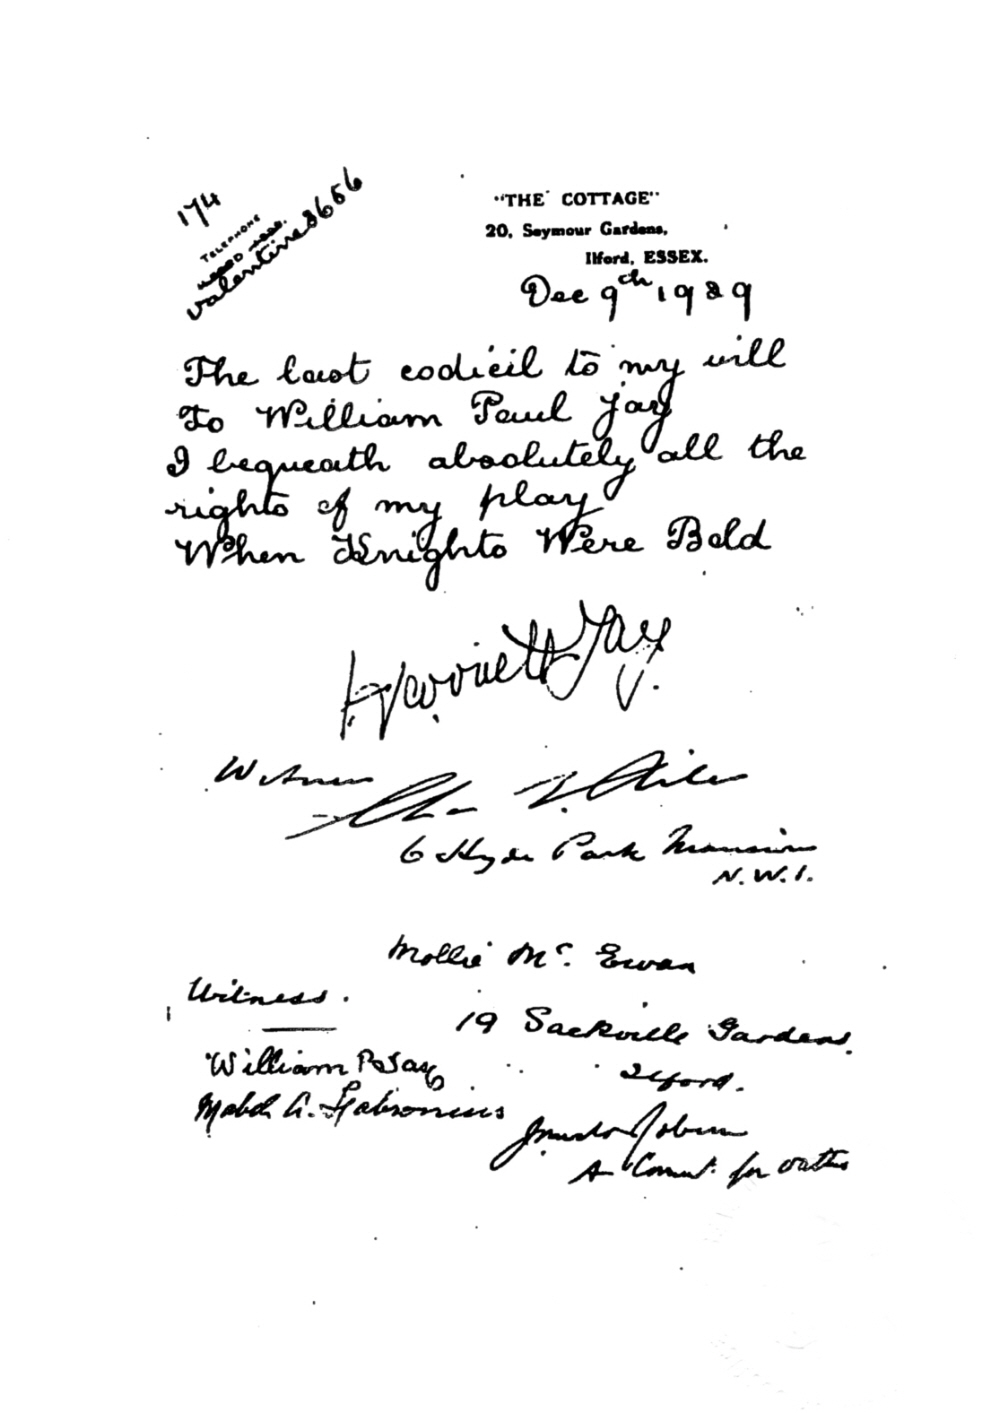 174
TELEPHONE
Valentine 8656
"THE COTTAGE"
20, Seymour Gardens,
Ilford, ESSEX.
Dec 9th 1929
The last codicil to my will
To William Paul Jay
I bequeath absolutely all the
rights of my play
When Knights Were Bold
Harriett Jay.
Witness
6 Hyde Park Mansions
N.W.1.
Mollie Mc. Ewan
Witness.
19 Sackville Gardens.
Ilford.
William P Jay
Mabel A.
A Commr. for oaths